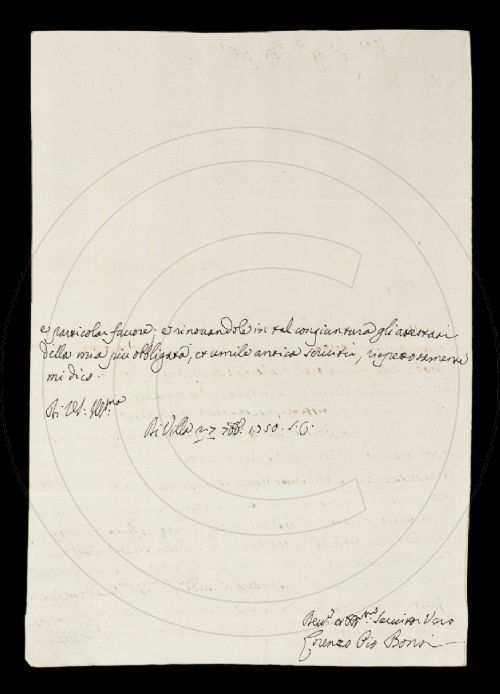 e particolar favore: e rinovandole in tal congiuntura gli attestati
della mia più obbligata, et umile antica servitù, rispettosamente
mi dico
Di VS. Ill.ma
Di Villa 27 7bre. 1750. S.G.
Dev. et Obb.mo Servitor Vero
Lorenzo Pio Bonsi